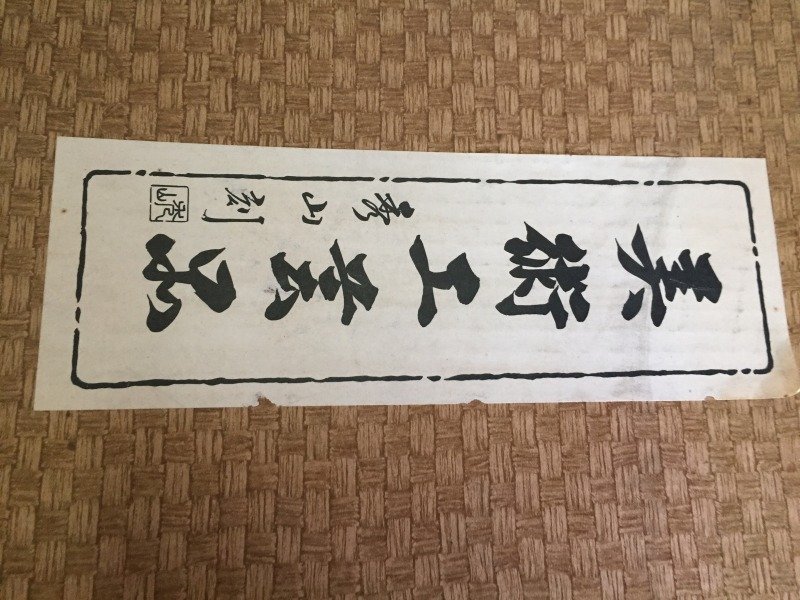 美術工芸品
山刻